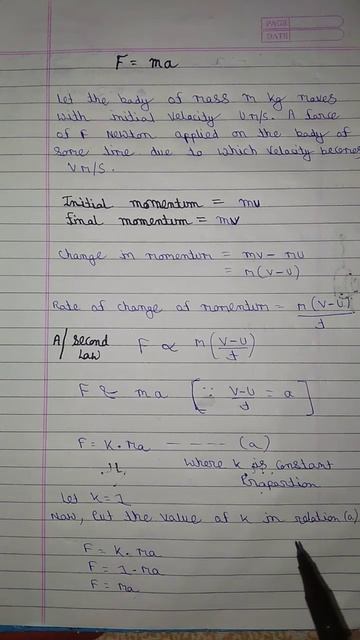 PAGE
DATE
F = ma
Let the body of mass m kg moves
with initial velocity U m/s. A force
of F Newton applied on the body of
some time due to which velocity becomes
V m/s.
Initial momentum = mu
final momentum = mv
Change in momentum = mv - mu
= m(v-u)
Rate of change of momentum = m(v-u)/t
A/ second law F ∝ m(v-u/t)
F ∝ ma [∵ v-u/t = a]
F = K·ma ---- (a)
where k is constant
Proportion
Let K = 1
Now, Put the value of K in relation (a)
F = K·ma
F = 1·ma
F = ma